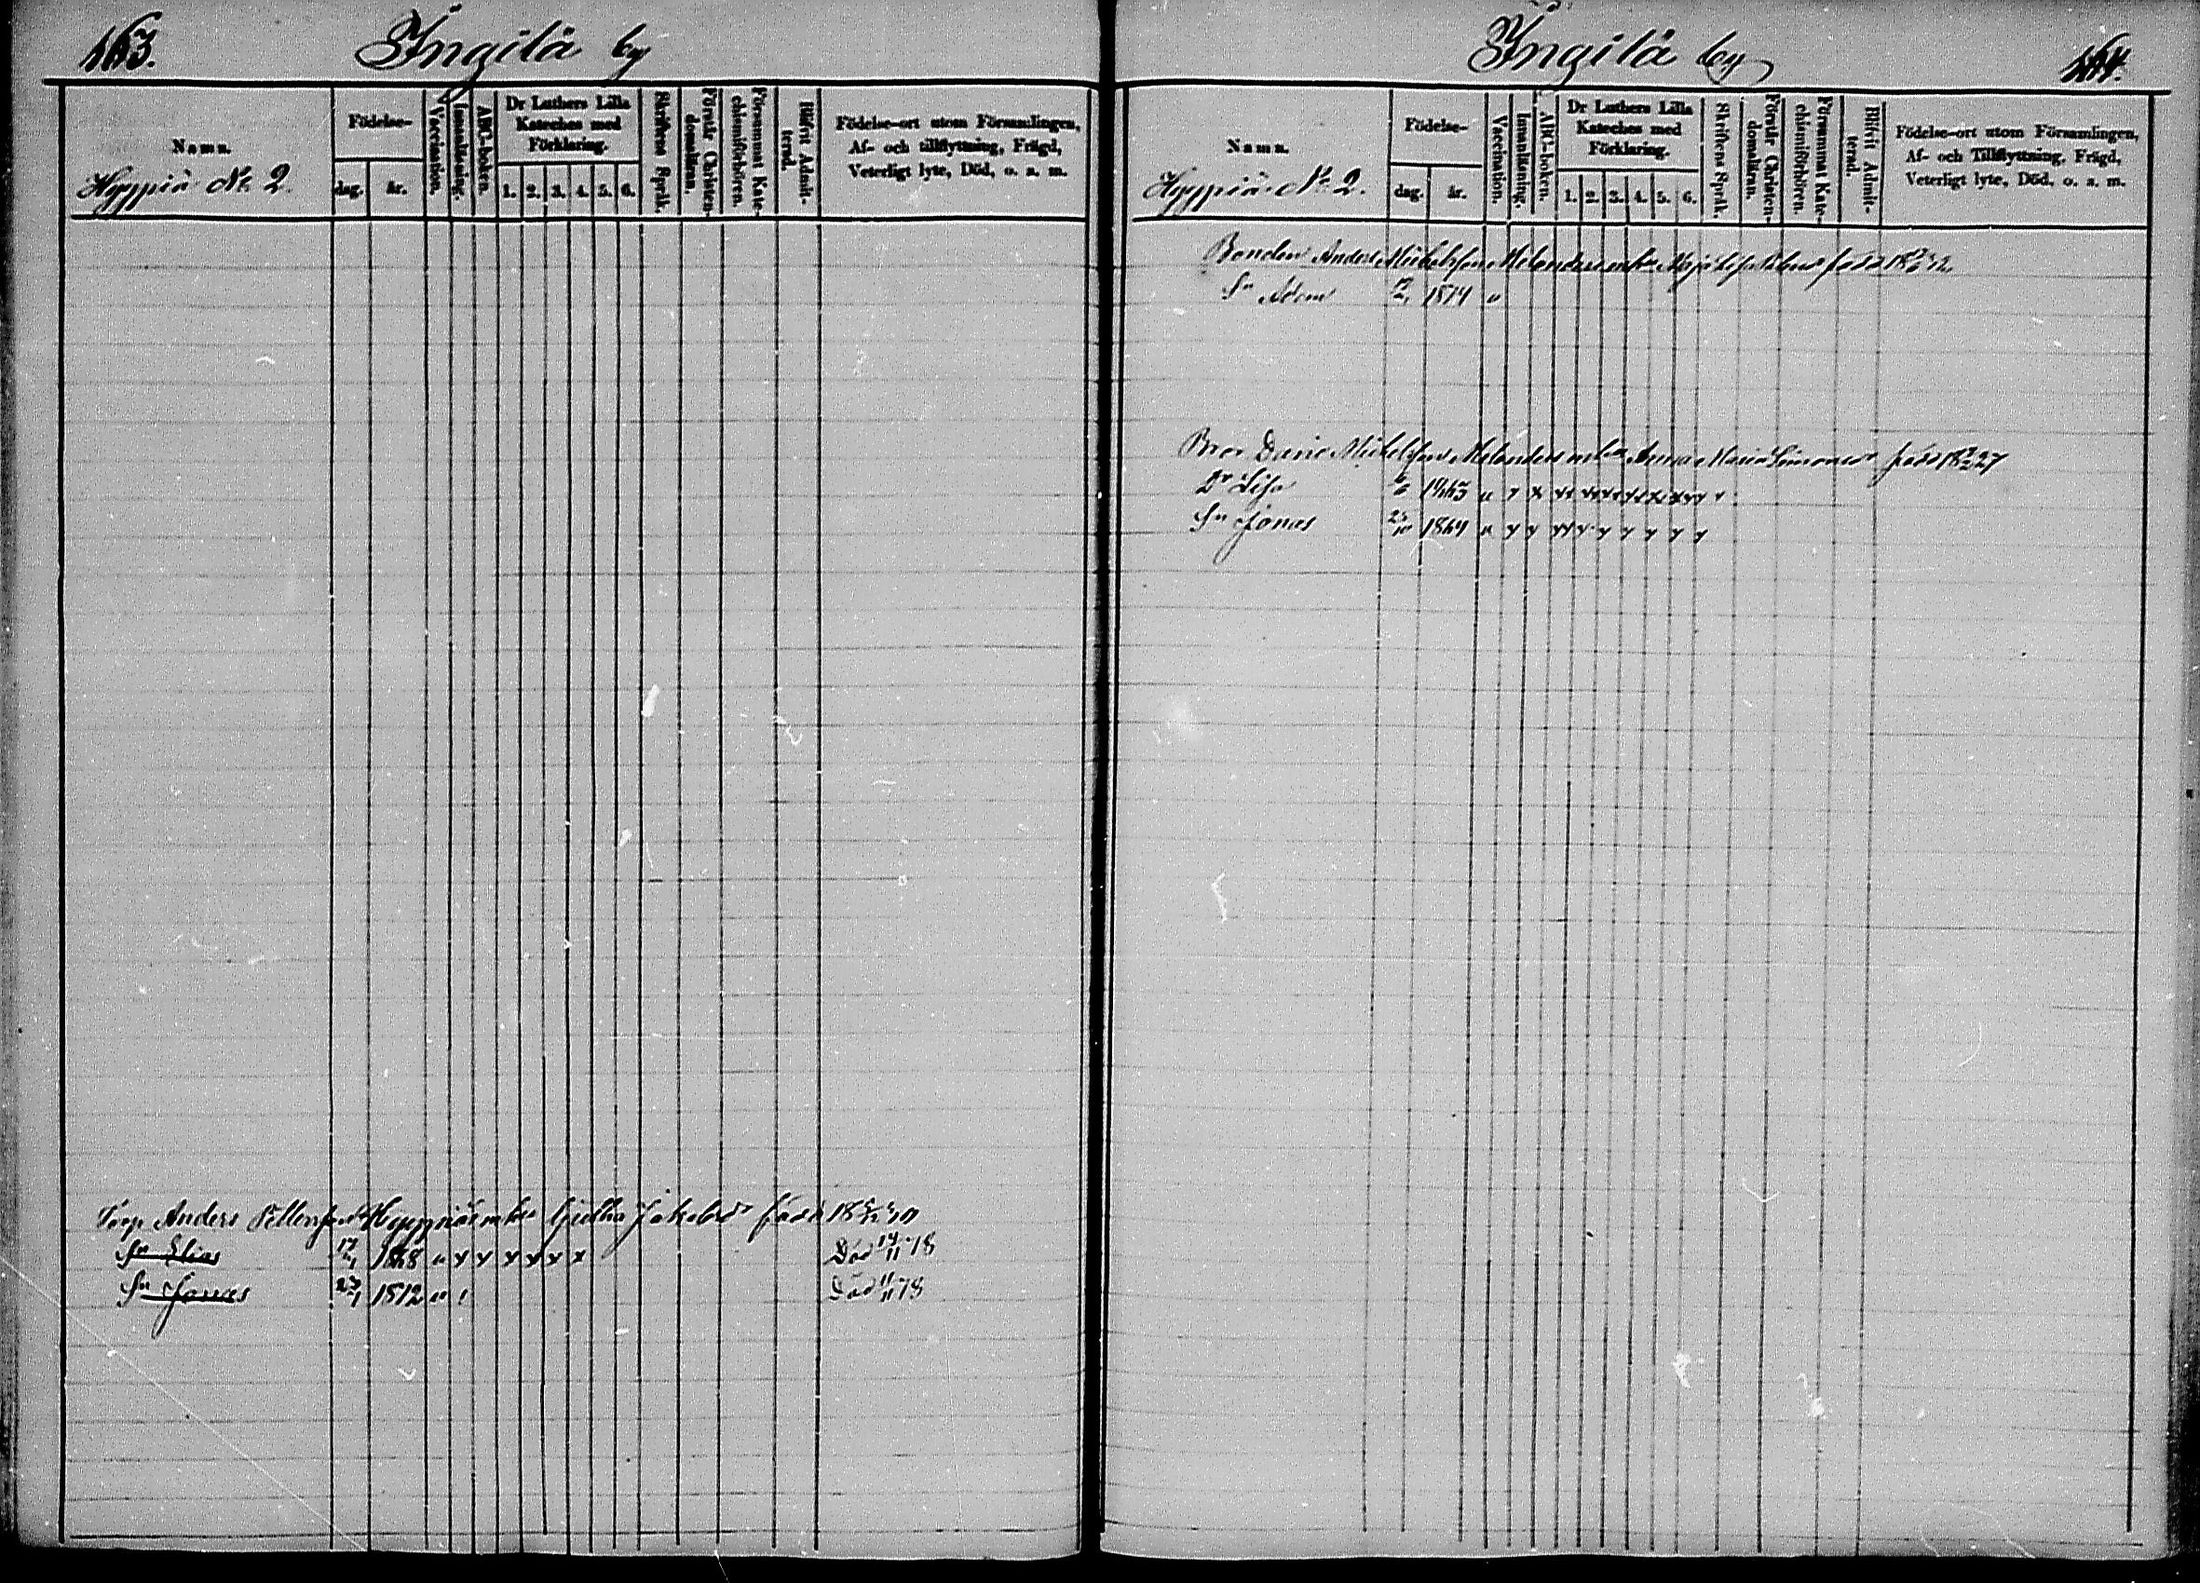 Ingilä by
Namn.
Hyypiä No 2.
Födelse-
dag.
år.
Vaccination.
Innanläsning.
ABC-boken.
Dr Luthers Lilla
Kateches med
Förklaring.
1. 2. 3. 4. 5. 6.
Skriftens Språk.
Förstår Christen-
domsläran.
Försummat Kate-
chismiförhören.
Blifvit Admit-
terad.
Födelse-ort utom Församlingen,
Af- och tillflyttning, Frägd,
Veterligt lyte, Död, o. s. m.
Torp Anders Hyypiäs Jakobsdr född
Sn Elias 17/1 1868 Död 14/11 78
Sn Jonas 23/1 1872 Död 11/11 78
Ingilä by
Namn.
Hyypiä No 2.
Födelse-
dag.
år.
Vaccination.
Innanläsning.
ABC-boken.
Dr Luthers Lilla
Kateches med
Förklaring.
1. 2. 3. 4. 5. 6.
Skriftens Språk.
Förstår Christen-
domsläran.
Försummat Kate-
chismiförhören.
Blifvit Admit-
terad.
Födelse-ort utom Församlingen,
Af- och Tillflyttning, Frägd,
Veterligt lyte, Död, o. s. m.
Bonden Anders Michelsson Melanders Maja Lisa född
Sn Adam 1874
Bror David Michelsson Melanders Anna Maria Simonsdr född
Dr Lisa
Sn Jonas 1864